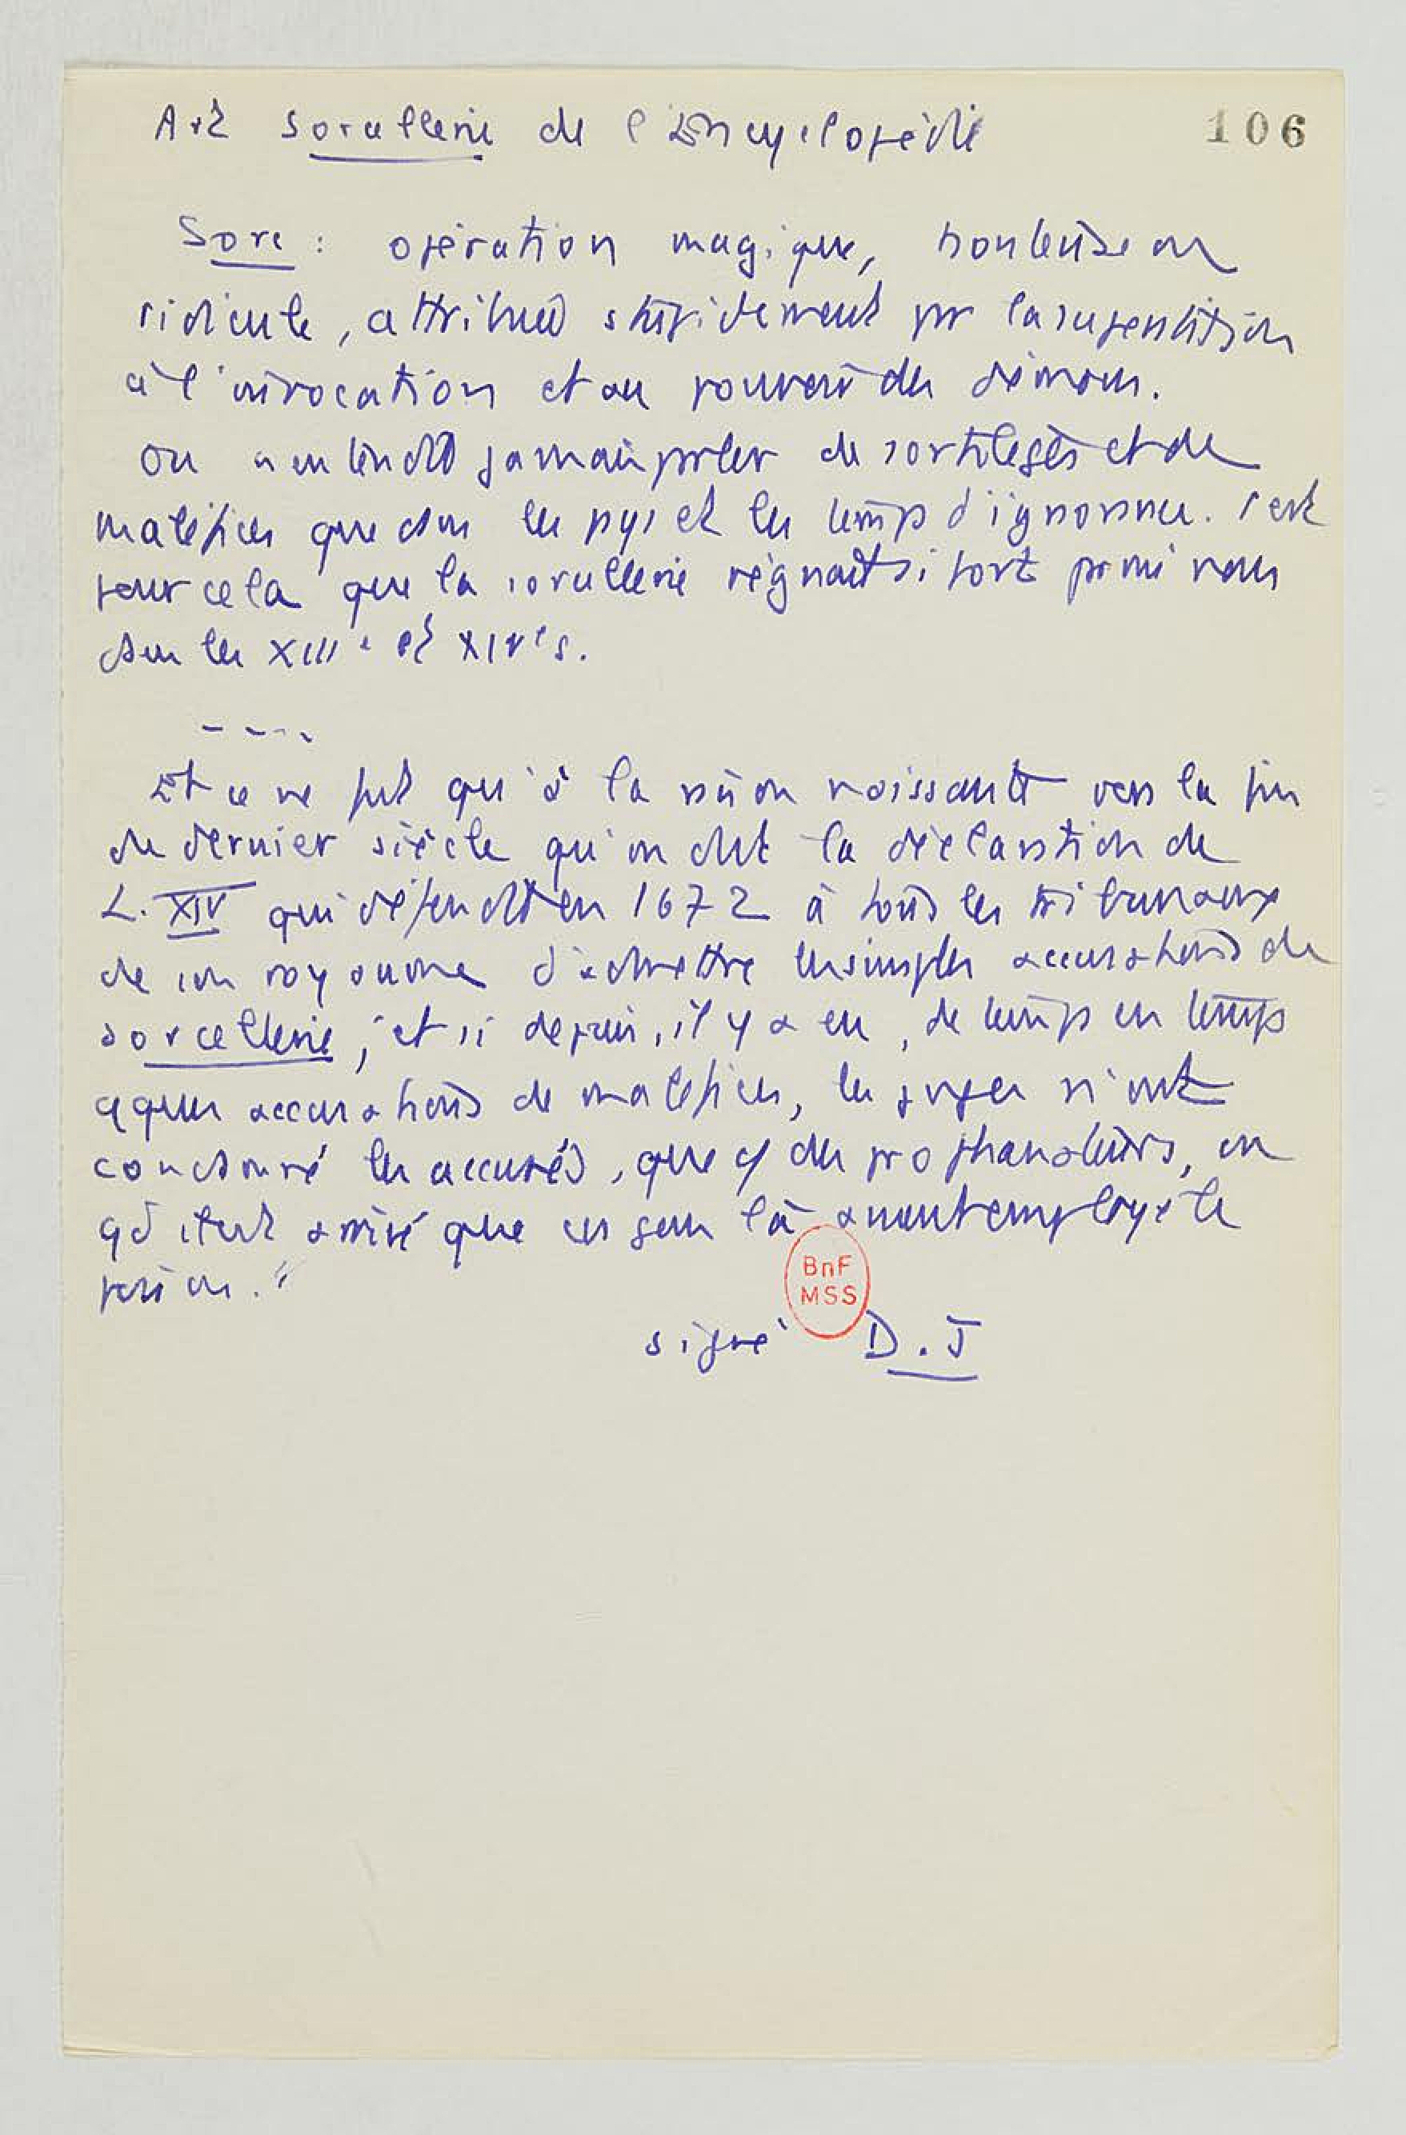 Art Sorcellerie de l'Encyclopédie
106
Sorc : opération magique, honteuse ou
ridicule, attribué stupidement par la superstition
à l'invocation et au pouvoir des démons.
On n'entendit jamais parler de sortilèges et de
maléfices que dans les pays et les temps d'ignorance. C'est
pour cela que la sorcellerie régnait si fort parmi nous
dans les XIIIe et XIVe s.
----
Et ce ne fut qu'à la raison naissante vers la fin
du dernier siècle qu'on dut la déclaration de
L. XIV qui défendit en 1672 à tous les tribunaux
de son royaume d'admettre les simples accusations de
sorcellerie ; et si depuis, il y a eu, de temps en temps
qques accusations de maléfices, les juges n'ont
condamné les accusés, que c/ des prophanateurs, ou
qd il est arrivé que ces gens là avaient employé le
poison."
BnF
MSS
signé D. J